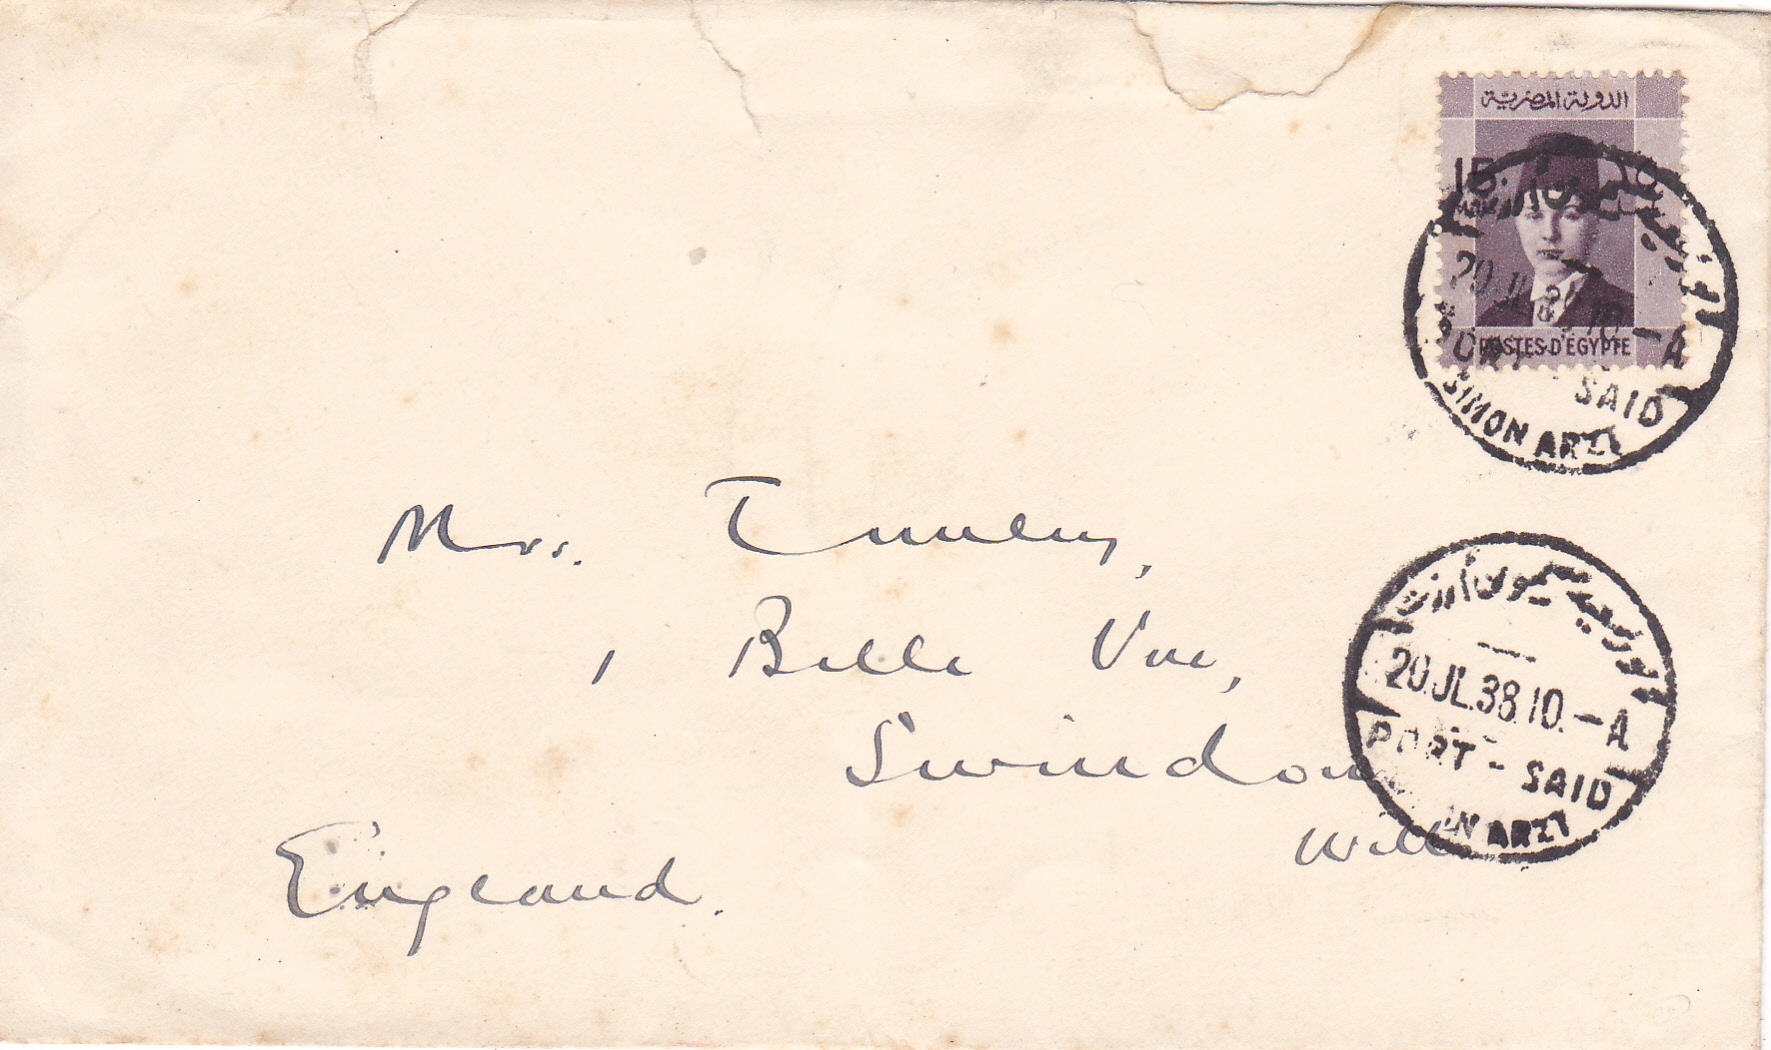 الدولة المصرية
15
POSTES D'EGYPTE
20 JL 38 10 - A
PORT - SAID
SIMON ARZT
Mrs.
1 Belle Vue,
Swindon
England.
بورسعيد سيمون أرزت
20.JL.38.10.-A
PORT - SAID
ARZT